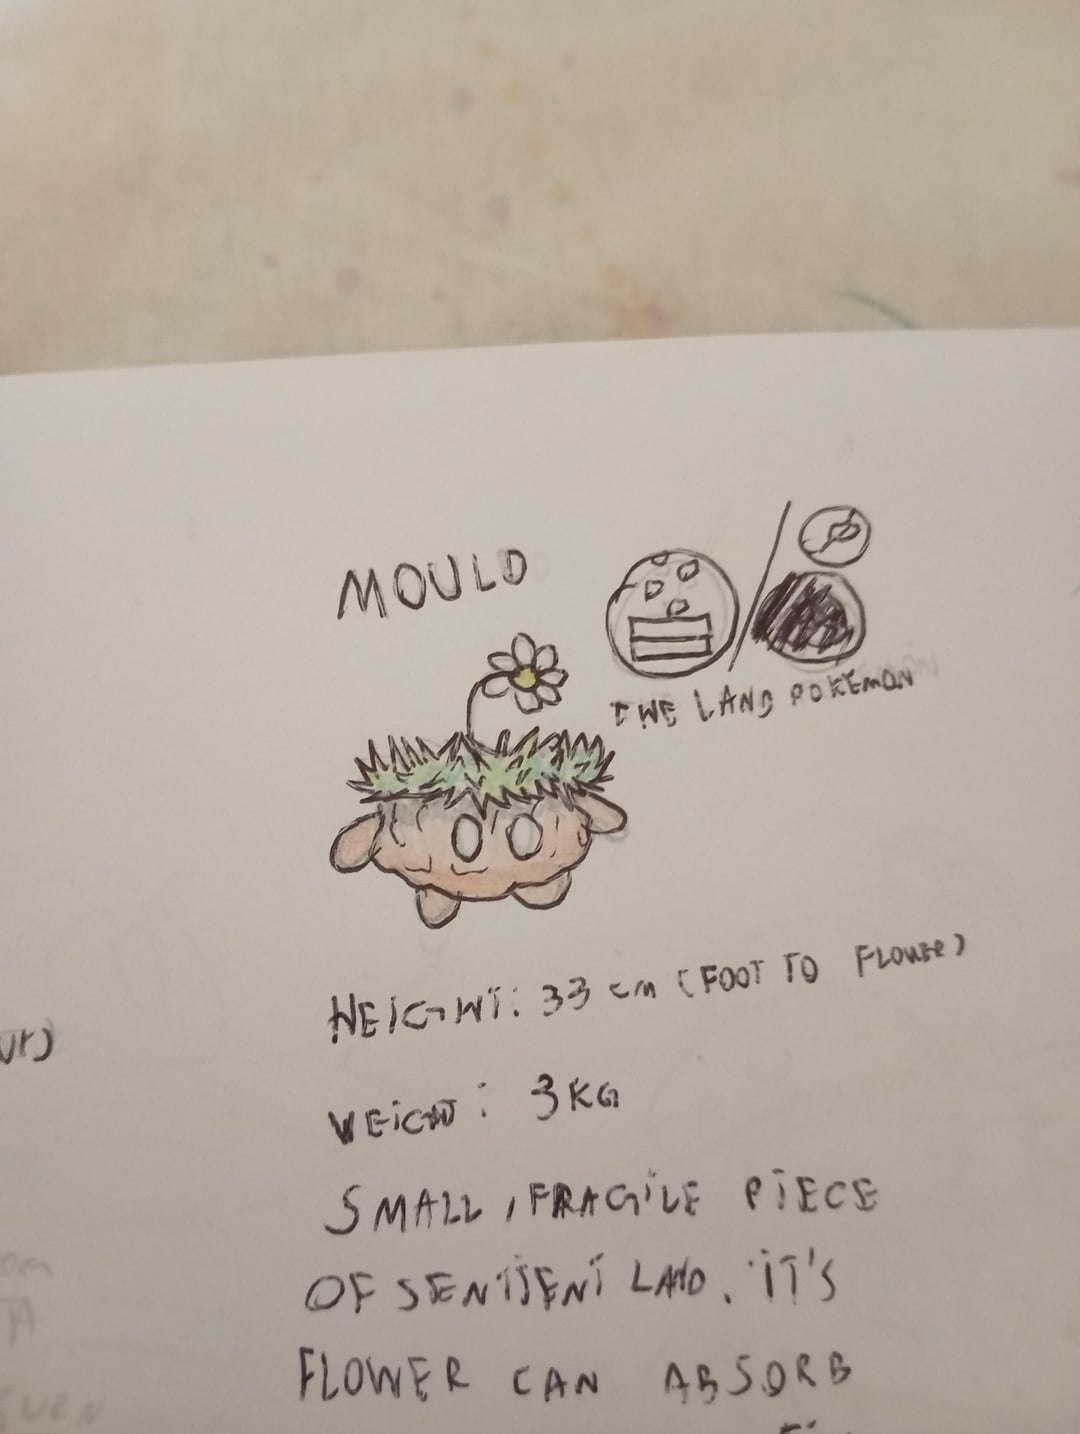 MOULD
THE LAND POKEMON
HEIGHT: 33 cm (FOOT TO FLOWER)
WEIGHT: 3KG
SMALL, FRAGILE PIECE
OF SENTIENT LAND. IT'S
FLOWER CAN ABSORB